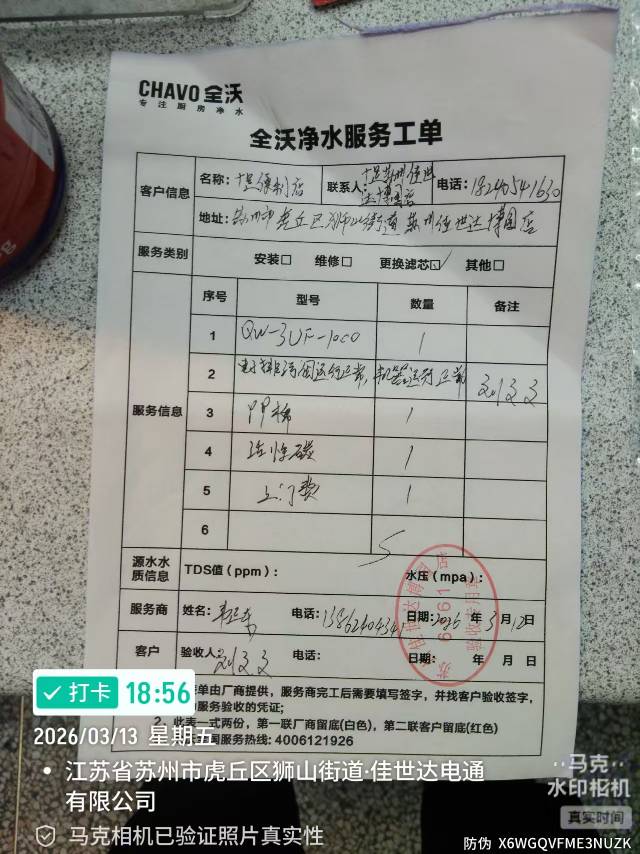 CHAVO 全沃
专注厨房净水
全沃净水服务工单
客户信息 名称: 十足便利店 联系人: 十足苏州佳世达博园店 电话: 18240541630
地址: 苏州市虎丘区狮山街道苏州佳世达博园店
服务类别 安装□ 维修□ 更换滤芯☑ 其他□
服务信息 序号 型号 数量 备注
1 QW-3UF-1000 1
2 电排污阀运行正常, 机器运行正常
3 PP棉 1
4 活性碳 1
5 上门费 1
6
源水水质信息 TDS值 (ppm): 水压 (mpa):
服务商 姓名: 电话: 日期: 2026 年 3 月 12 日
客户 验收人: 电话: 日期: 年 月 日
单由厂商提供，服务商完工后需要填写签字，并找客户验收签字，
服务验收的凭证;
2、此表一式两份，第一联厂商留底(白色)，第二联客户留底(红色)
国服务热线: 4006121926
打卡 18:56
2026/03/13 星期五
江苏省苏州市虎丘区狮山街道·佳世达电通有限公司
马克相机已验证照片真实性
马克
水印相机
真实时间
防伪 X6WGQVFME3NUZK